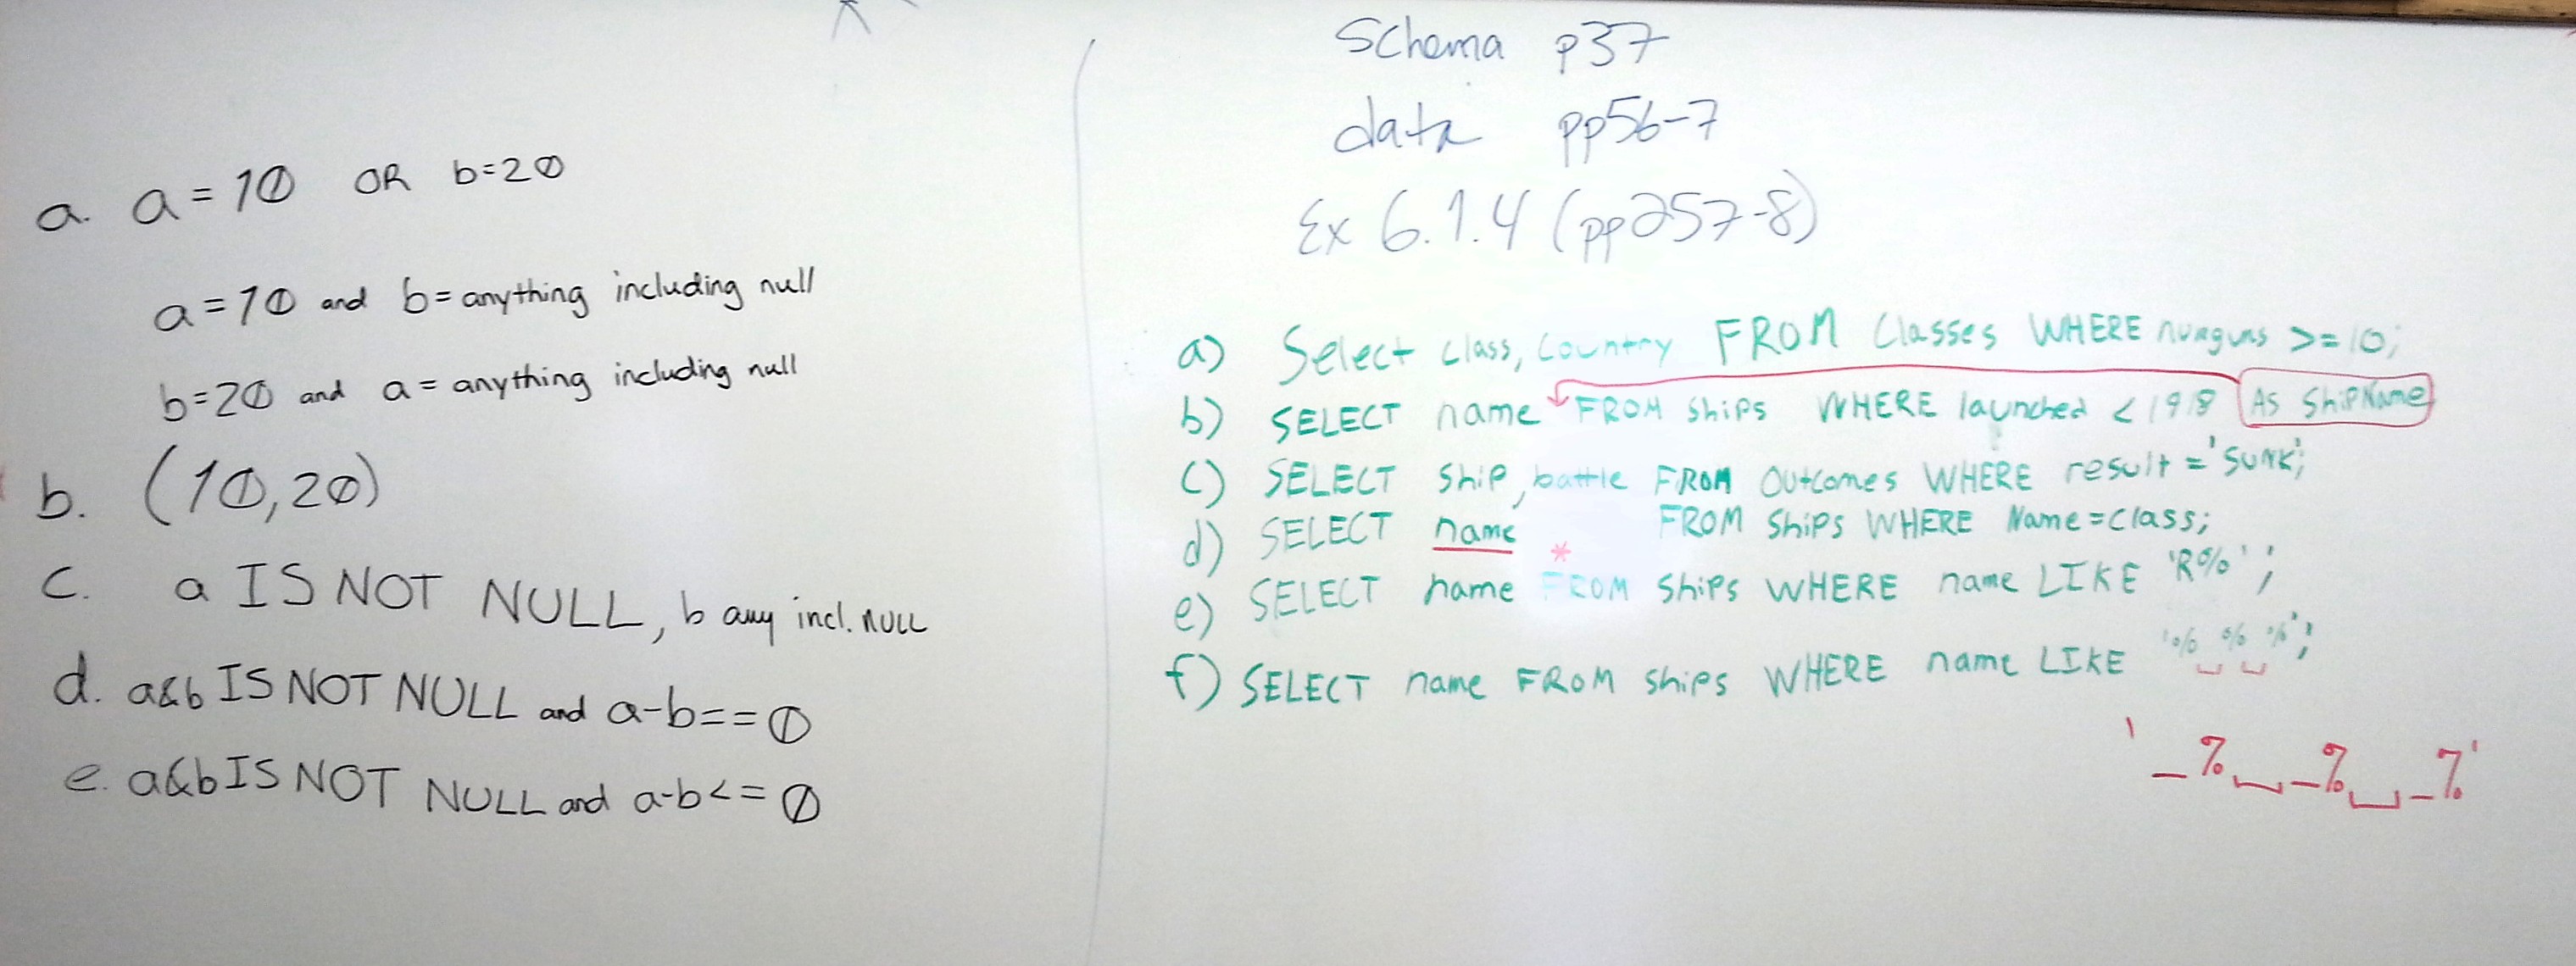 a. a = 10 OR b=20
a=10 and b=anything including null
b=20 and a = anything including null
b. (10,20)
c. a IS NOT NULL, b any incl. NULL
d. a&b IS NOT NULL and a-b==0
e. a&b IS NOT NULL and a-b<=0
Schema p37
data pp56-7
Ex 6.1.4 (pp257-8)
a) Select class, Country FROM Classes WHERE numguns >=10;
b) SELECT name FROM Ships WHERE launched < 1918 As ShipName
c) SELECT Ship, battle FROM Outcomes WHERE result = 'sunk';
d) SELECT name FROM Ships WHERE Name=class;
*
e) SELECT name FROM Ships WHERE name LIKE 'R%';
f) SELECT name FROM Ships WHERE name LIKE '%␣%␣%';
'_%␣_%␣_%'